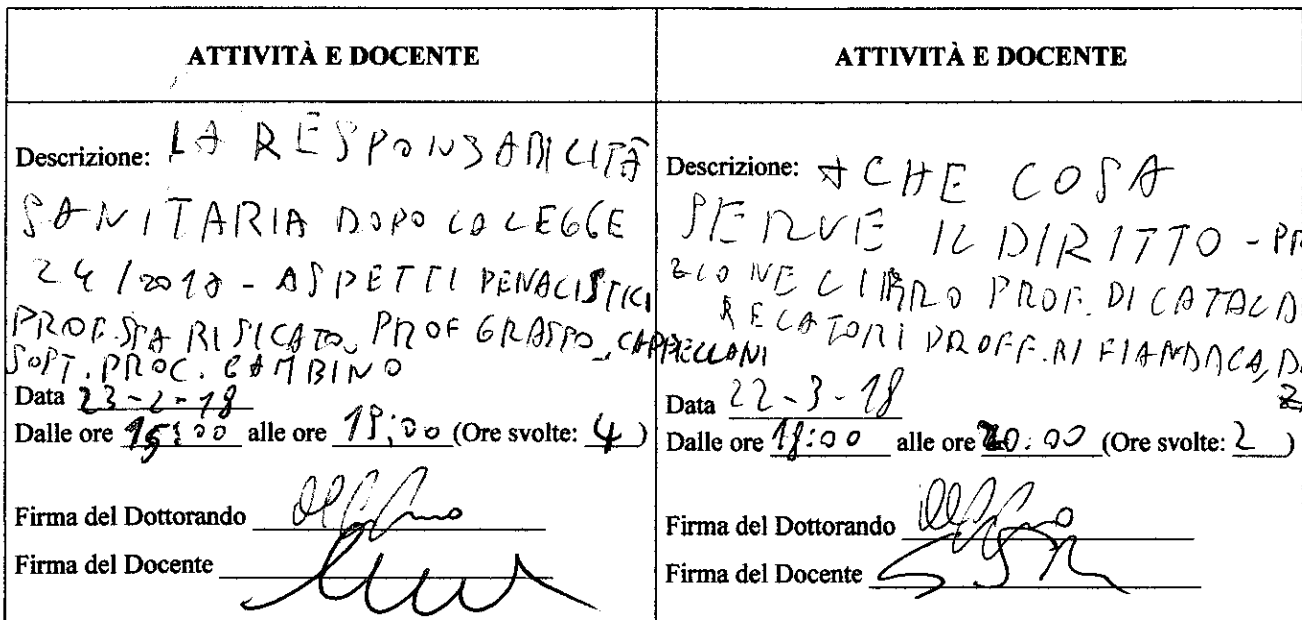 ATTIVITÀ E DOCENTE
Descrizione: LA RESPONSABILITÀ
SANITARIA DOPO LA LEGGE
24/2017 - ASPETTI PENALISTICI
PROF.SSA RISICATO, PROF GRASSO, CAPPELLANI
SOST. PROC. CAMBINO
Data 23-2-18
Dalle ore 15:00 alle ore 19:00 (Ore svolte: 4)
Firma del Dottorando
Firma del Docente
ATTIVITÀ E DOCENTE
Descrizione: A CHE COSA
SERVE IL DIRITTO - PR
ZIONE LIBRO PROF. DI CATALD
RELATORI PROFF.RI FIANDACA, D
Data 22-3-18
Dalle ore 18:00 alle ore 20:00 (Ore svolte: 2)
Firma del Dottorando
Firma del Docente